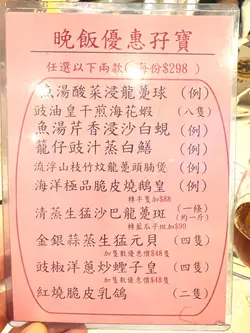 晚飯優惠孖寶
任選以下兩款(每份$298)
魚湯酸菜浸龍躉球 (例)
豉油皇干煎海花蝦 (八隻)
魚湯芹香浸沙白蜆 (例)
龍仔豉汁蒸白鱔 (例)
流浮山枝竹炆龍躉頭腩煲 (例)
海洋極品脆皮燒鵝皇 (例)
轉半隻加$88
清蒸生猛沙巴龍躉斑 (一條)(約一斤)
轉藍瓜子斑加$90
金銀蒜蒸生猛元貝 (四隻)
加隻數優惠價$48隻
豉椒洋蔥炒蟶子皇 (四隻)
加隻數優惠價$48隻
紅燒脆皮乳鴿 (二隻)